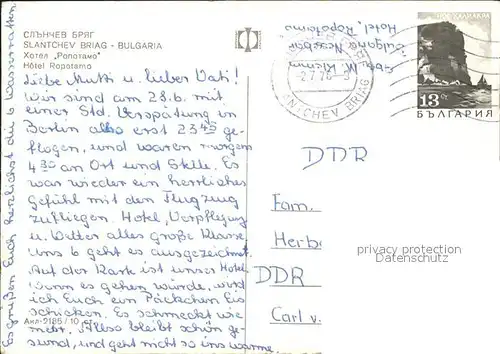 СЛЪНЧЕВ БРЯГ
SLANTCHEV BRIAG - BULGARIA
Хотел „Ропотамо"
Hôtel Ropotamo
Liebe Mutti u. lieber Vati!
Wir sind am 28.6. mit
einer Std. Verspätung in
Berlin also erst 23 45 ge-
flogen, und waren morgens
4 30 an Ort und Stelle. Es
war wieder ein herrliches
Gefühl mit dem Flugzeug
zu fliegen. Hotel, Verpflegung
u. Wetter alles große Klasse.
Uns 6 geht es ausgezeichnet.
Auf der Karte ist unser Hotel.
Wenn es gehen würde, wird
ich Euch ein Päckchen Eis
schicken. Es schmeckt wie
mehr. Also bleibt schön ge-
sund, und geht nicht so ins warme
Es grüßen Euch herzlichst die 6 Wasserratten
Ант-2186 / 10 ст
Hotel, Ropotamo
Bulgaria Nessebar
НТЧЕВ BRIAG
13 ст
БЪЛГАРИЯ
DDR
Fam.
Herb
DDR
Carl v.
privacy protection
www.ansichtskarten-center.de